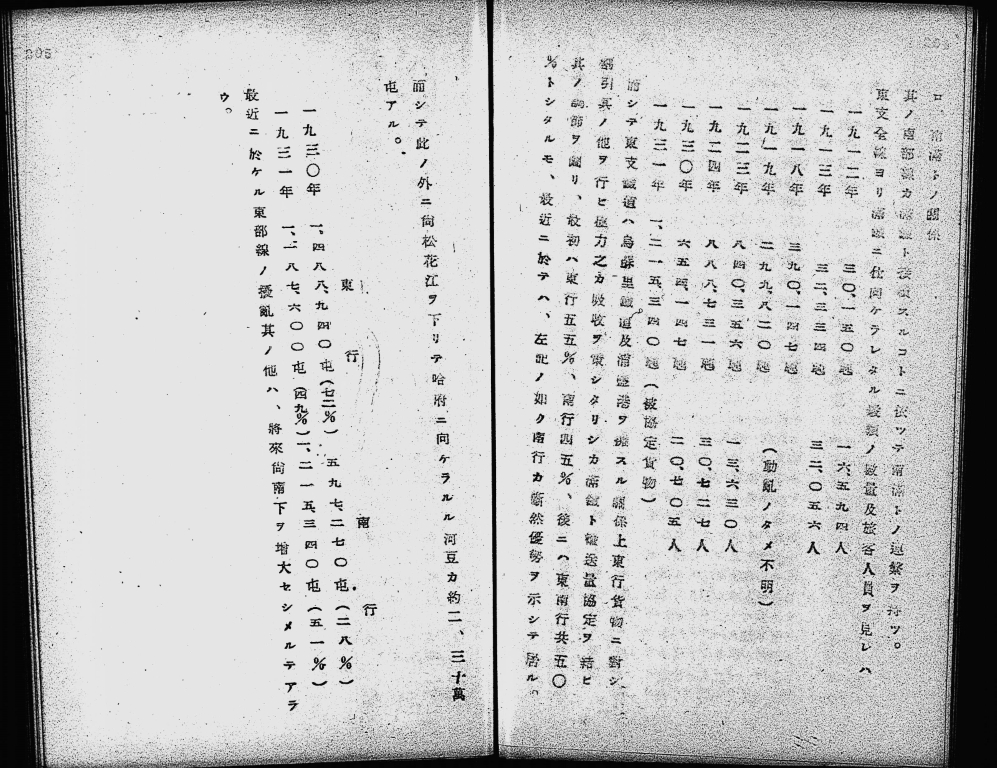 ロ、南滿トノ關係
其ノ南部線カ滿鐵ト接續スルコトニ依ツテ南滿トノ連繫ヲ持ツ。
東支全線ヨリ滿鐵ニ仕向ケラレタル ノ數量及旅客人員ヲ見レハ
一九一二年 三〇、一五〇 一六、五九四人
一九一三年 三二、三三四 三二、〇五六人
一九一八年 三九〇、一四七
一九一九年 二九九、八二〇 (動亂ノタメ不明)
一九二三年 八四〇、三五六 一三、六三〇人
一九二四年 八八八、七三一 三〇、七二七人
一九三〇年 六五四、一四七 二〇、七〇五人
一九三一年 一、二一五、三四〇 (被協定貨物)
而シテ東支鐵道ハ烏蘇里鐵道及浦鹽港ヲ擁スル關係上東行貨物ニ對シ
割引其ノ他ヲ行ヒ極力之カ吸收ヲ策シタリシカ滿鐵ト輸送量協定ヲ結ヒ
其ノ調節ヲ圖リ、最初ハ東行五五%、南行四五%、後ニハ東南行共五〇
%トシタルモ、最近ニ於テハ、左記ノ如ク南行カ漸然優勢ヲ示シテ居ル。
205
而シテ此ノ外ニ尙松花江ヲ下リテ哈府ニ向ケラルル河豆カ約二、三十萬
屯アル。
東行 南行
一九三〇年 一、四八八、九四〇屯(七二%) 五九七、二七〇屯(二八%)
一九三一年 一、一八七、六〇〇屯(四九%) 一、二一五、三四〇屯(五一%)
最近ニ於ケル東部線ノ擾亂其ノ他ハ、將來尙南下ヲ增大セシメルテアラ
ウ。